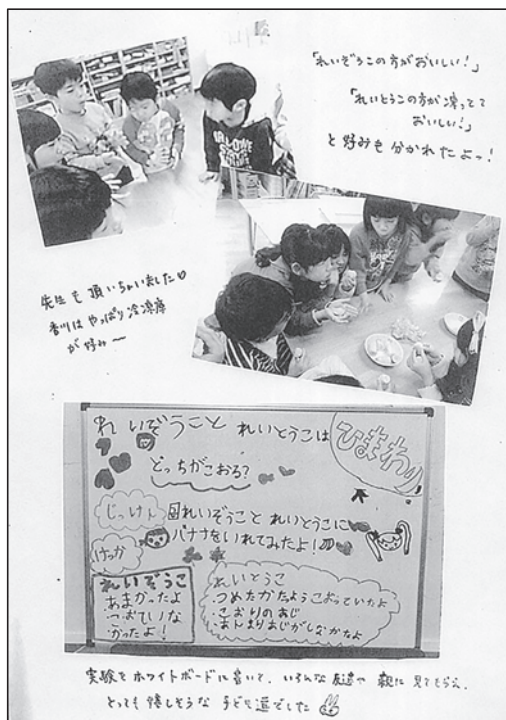 「れいぞうこの方がおいしい！」
「れいとうこの方が凍ってて
おいしい！」
と好みも分かれたよっ！
先生も頂いちゃいました♡
香川はやっぱり冷凍庫
が好み〜
れいぞうこと れいとうこは
どっちがこおる？
ひまわり
じっけん
れいぞうこと れいとうこに
バナナをいれてみたよ！
けっか
れいぞうこ
あまかったよ
こおていな
かったよ！
れいとうこ
つめたかたよ こおっていたよ
こおりのあじ
あんまりあじがしなかたよ
実験をホワイトボードに書いて、いろんな友達や 親に 見てもらえ、
とっても嬉しそうな 子ども達でした